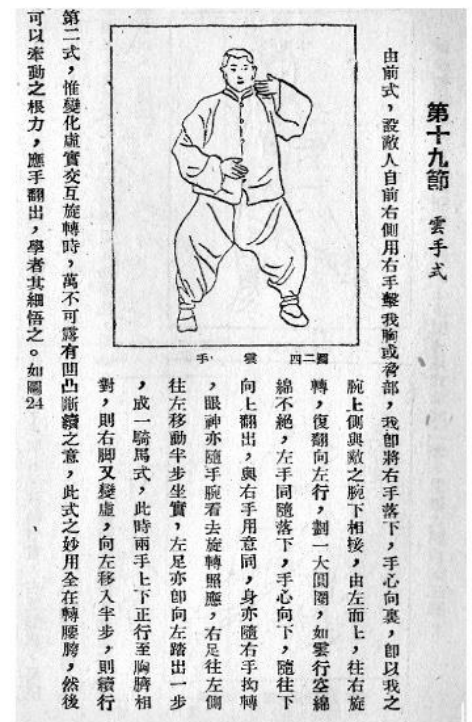 第十九節 雲手式
由前式,設敵人自前右側用右手擊我胸或脅部,我卽將右手落下,手心向裏,卽以我之
腕上側與敵之腕下相接,由左而上,往右旋
轉,復翻向左行,劃一大圓圈,如雲行空綿
綿不絕,左手同隨落下,手心向下,隨往下
向上翻出,與右手用意同,身亦隨右手拗轉
,眼神亦隨手腕看去旋轉照應,右足往左側
往左移動半步坐實,左足亦卽向左踏出一步
,成一騎馬式,此時兩手上下正行至胸臍相
對,則右脚又變虛,向左移入半步,則續行
圖二四 雲手
第二式,惟變化虛實交互旋轉時,萬不可露有凹凸斷續之意,此式之妙用全在轉腰胯,然後
可以牽動之根力,應手翻出,學者其細悟之。如圖24